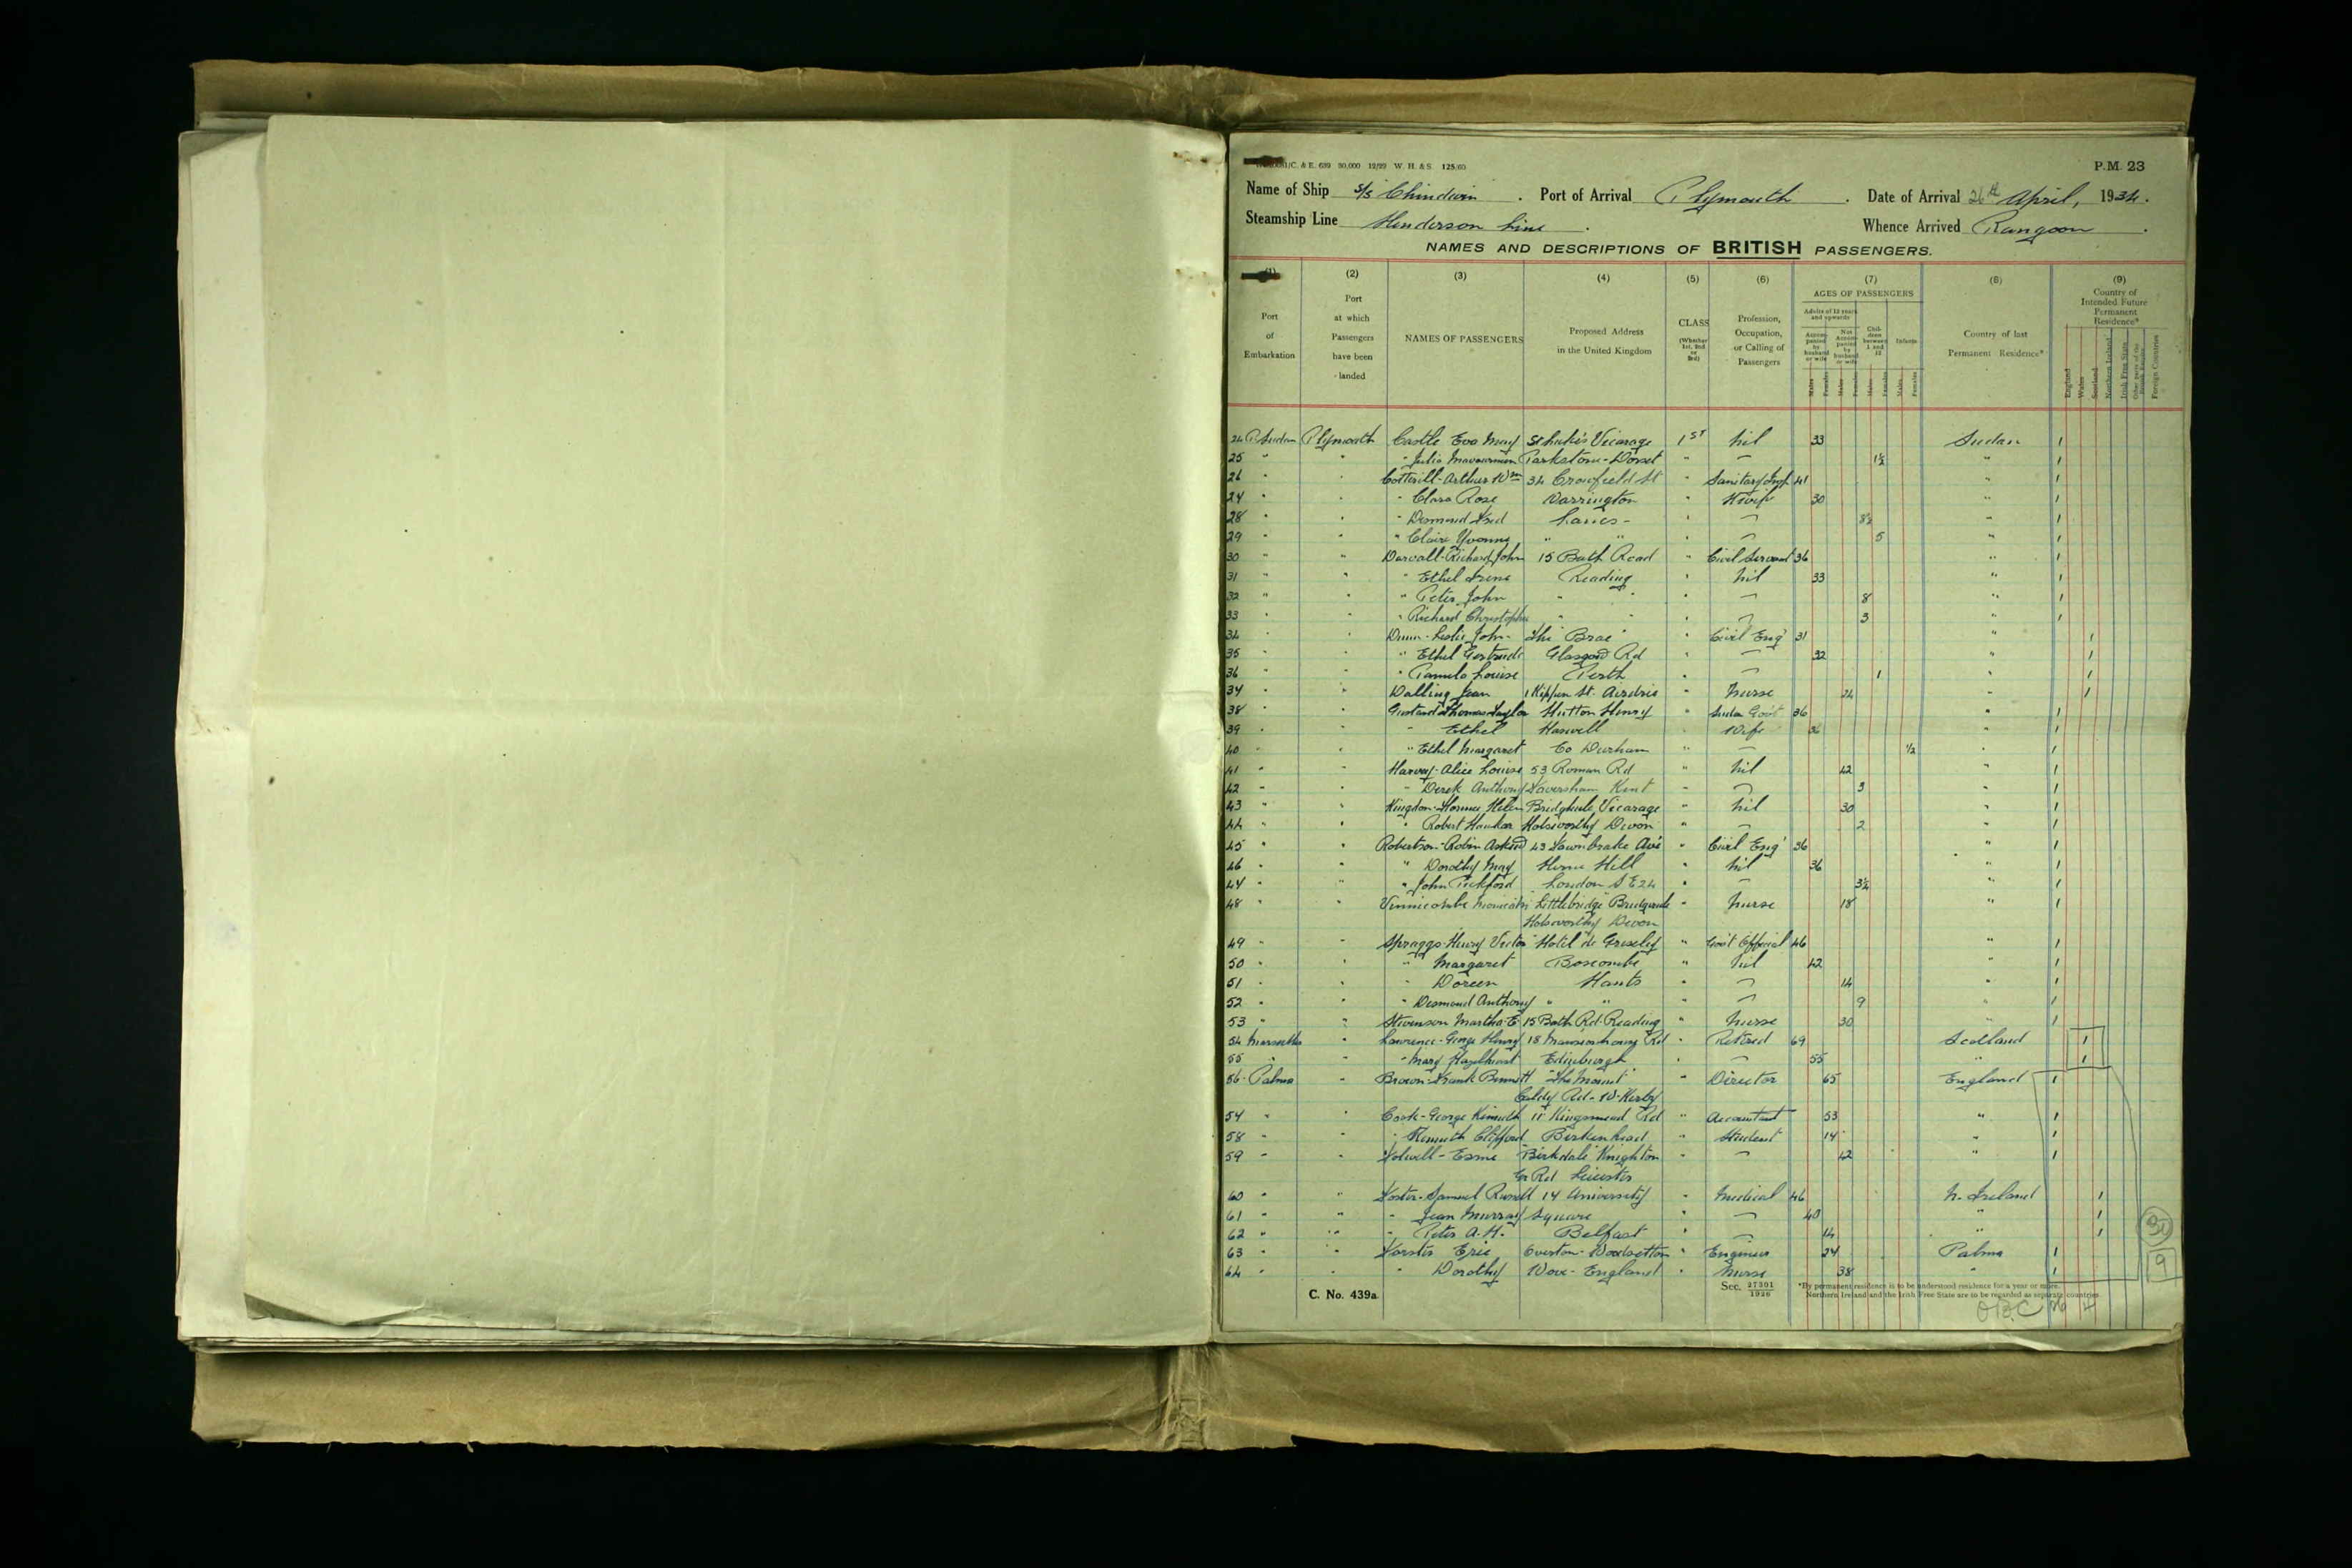 C. & R. 689 50,000 12/29 W. H. & S. 125/60
P.M. 23
Name of Ship S/S Chindwin . Port of Arrival Plymouth . Date of Arrival 26th April, 1934.
Steamship Line Henderson Line . Whence Arrived Rangoon .
NAMES AND DESCRIPTIONS OF BRITISH PASSENGERS.
(1) (2) (3) (4) (5) (6) (7) (8) (9)
Port of Embarkation
Port at which Passengers have been landed
NAMES OF PASSENGERS
Proposed Address in the United Kingdom
CLASS (Whether 1st, 2nd or 3rd)
Profession, Occupation, or Calling of Passengers
AGES OF PASSENGERS
Adults of 12 years and upwards
Accompanied by husband or wife
Not Accompanied by husband or wife
Children between 1 and 12
Infants
Males Females Males Females Males Females Males Females
Country of last Permanent Residence*
Country of Intended Future Permanent Residence*
England Wales Scotland Northern Ireland Irish Free State Other parts of the British Empire Foreign Countries
24 P. Sudan Plymouth Castle Eva May St Luke's Vicarage 1st Nil 33 Sudan 1
25 " " - Julia Parkstone - Dorset " - 1½ " 1
26 " " Cotterill - Arthur Wm 34 Crowfield St " Sanitary Insp 41 " 1
27 " " - Clara Rose Warrington " H'wife 30 " 1
28 " " - Desmond Fred Lancs - " - 8½ " 1
29 " " " Claire Yvonne " " " - 5 " 1
30 " " Darvall - Richard John 15 Bath Road " Civil Servant 36 " 1
31 " " " Ethel Irene Reading " Nil 33 " 1
32 " " " Peter John " " " - 8 " 1
33 " " " Richard Christopher " " " - 3 " 1
34 " " Dunn - Leslie John - "The Brae" " Civil Eng' 31 " 1
35 " " " Ethel Gertrude Glasgow Rd " - 32 " 1
36 " " " Pamela Louise Perth " - 1 " 1
37 " " Dalling Jean 1 Kippen St. Airdrie " Nurse 24 " 1
38 " " Thomas Taylor Hutton Henry " Sudan Gov't 36 " 1
39 " " - Ethel Haswell " Wife 36 " 1
40 " " " Ethel Margaret Co Durham " - ½ " 1
41 " " Harvey - Alice Louise 53 Roman Rd " Nil 42 " 1
42 " " - Derek Anthony Faversham Kent " - 3 " 1
43 " " Kingdon - Florence Helen Bridgerule Vicarage " Nil 30 " 1
44 " " " Robert Hawker Holsworthy Devon " - 2 " 1
45 " " Robertson - Robin Askew 43 Fawnbrake Ave " Civil Eng' 36 " 1
46 " " " Dorothy May Herne Hill " Nil 36 " 1
47 " " " John Pickford London S E 24 " - 3½ " 1
48 " " Vinnicombe Littlebridge Bridgerule " Nurse 18 " 1
Holsworthy Devon
49 " " Spraggs - Henry Victor Hotel de " Gov't Official 46 " 1
50 " " " Margaret Boscombe " Nil 42 " 1
51 " " - Doreen Hants " - 14 " 1
52 " " - Desmond Anthony " " " - 9 " 1
53 " " Stevenson Martha E 15 Bath Rd. Reading " Nurse 30 " 1
54 Marseilles " Lawrence - George Henry 18 Mansionhouse Rd " Retired 69 Scotland 1
55 " " - Mary Hazelhurst Edinburgh " - 55 " 1
56 Palma " Brown - Frank Bennett "The Mount" " Director 65 England 1
Caldy Rd - W. Kirby
57 " " Cook - George Kenneth 11 Kingsmead Rd " Accountant 53 " 1
58 " " " Kenneth Clifford Birkenhead " Student 14 " 1
59 " " Folwell - Esme Birkdale Knighton " - 42 " 1
Gr Rd Leicester
60 " " Foster - Samuel Russell 14 University " Medical 46 N. Ireland 1
61 " " - Jean Murray Square " - 40 " 1
62 " " - Peter A. H. Belfast " - 14 " 1
63 " " Forster Eric " Engineer 27 Palma 1
64 " " " Dorothy - England " Nurse 38 " 1
C. No. 439a.
Sec. 27301/1926
*By permanent residence is to be understood residence for a year or more.
Northern Ireland and the Irish Free State are to be regarded as separate countries.
9